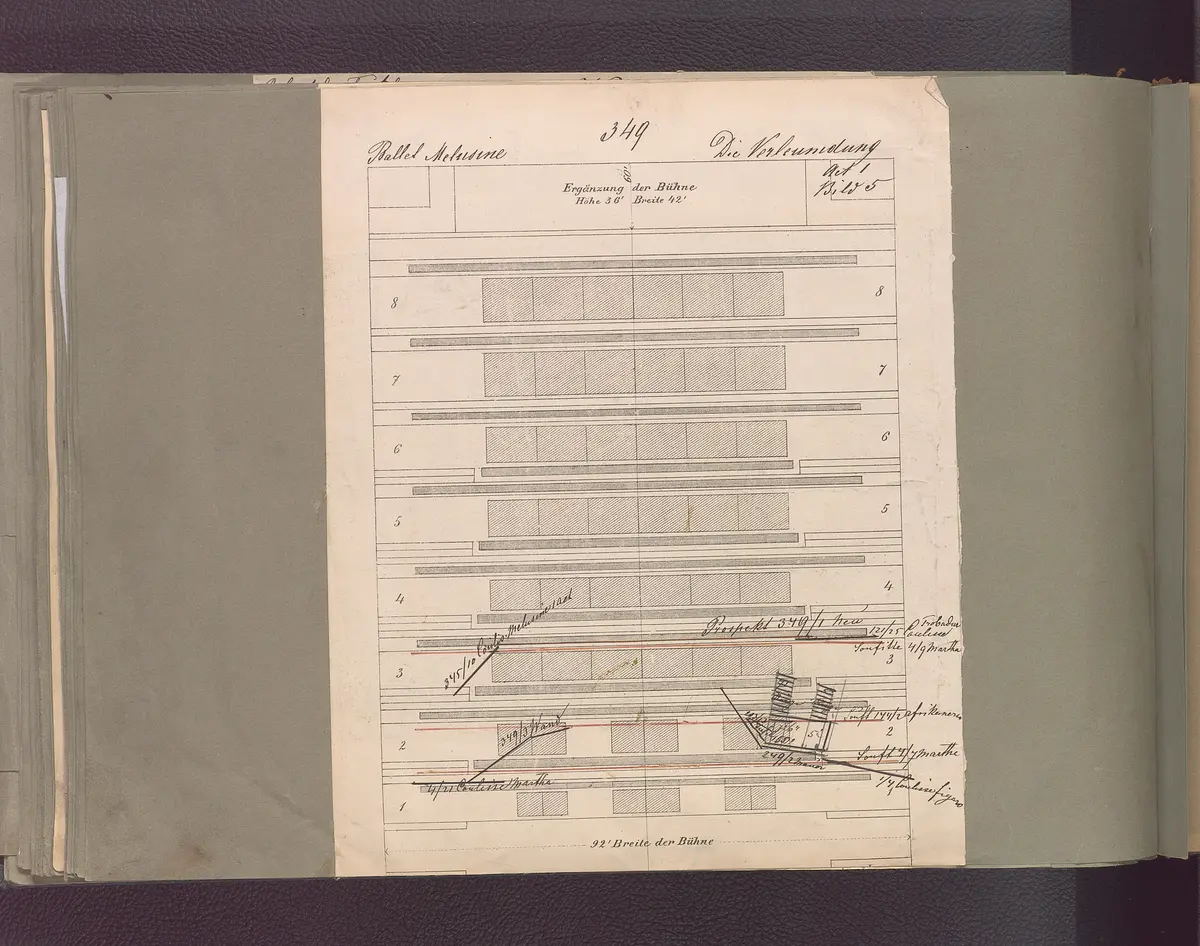 349
Ballet Melusine
Die Verleumdung
Act 1
Bild 5
60'
Ergänzung der Bühne
Höhe 36' Breite 42'
8 8
7 7
6 6
5 5
4 4
345/10 Coulis. Melusine
Prospekt 349/1 neu
12/25 Coulisse
Soufitte 4/9 Martha
3 3
Souft 144/2 Afrikanerin
349/3 Wand
2 2
5'
Souft 4/7 Martha
249/2
4/21 Coulisse Martha
1/4 Coulisse Figaro
1
92' Breite der Bühne